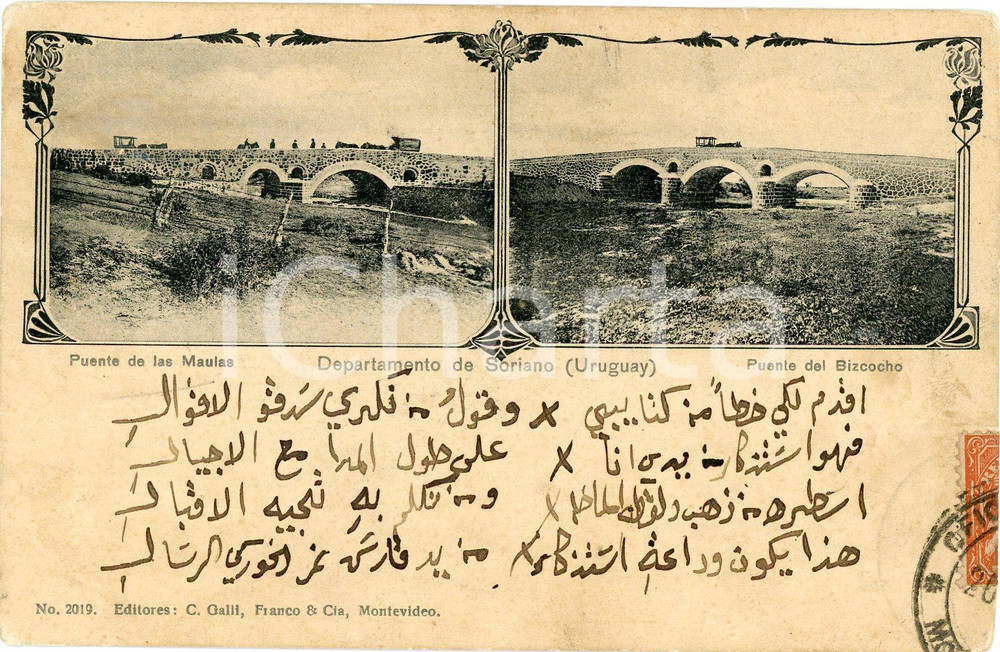 iCharta
Puente de las Maulas
Departamento de Soriano (Uruguay)
Puente del Bizcocho
اقدم لكي خطاً من كتا يبي x وقول من فكري سدقو الاقوال
فهوا ستذكار من يدي انا x على طول المدا مع الاجيال
اسطره من ذهب x ومن تكلم به تجيه الاقبال
هذا يكون وداعة استذكار x من يد فارس نمر الخوري الرسال
No. 2019. Editores: C. Galli, Franco & Cia, Montevideo.